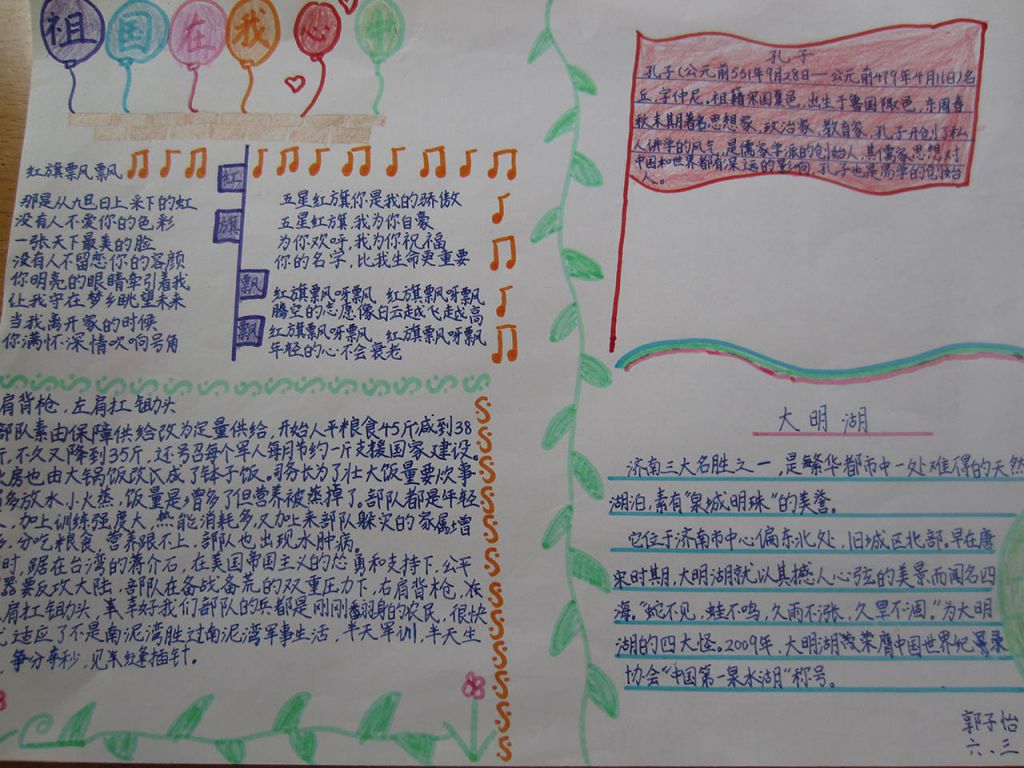 祖国在我心中
红旗飘飘
红
旗
飘
飘
那是从旭日上采下的虹
没有人不爱你的色彩
一张天下最美的脸
没有人不留恋你的容颜
你明亮的眼睛牵引着我
让我守在梦乡眺望未来
当我离开家的时候
你满怀深情吹响号角
五星红旗你是我的骄傲
五星红旗,我为你自豪
为你欢呼,我为你祝福
你的名字,比我生命更重要
红旗飘呀飘 红旗飘呀飘
腾空的志愿像白云越飞越高
红旗飘呀飘 红旗飘呀飘
年轻的心不会衰老
肩背枪,左肩扛锄头
部队素由保障供给改为定量供给,开始人平粮食45斤减到38
斤,不久又降到35斤,还号召每个军人每月节约一斤支援国家建设。
房也由大锅饭改长成了钵子饭。司务长为了壮大饭量要炊事
多放水小火蒸,饭量是增多了但营养被蒸掉了。部队都是年轻
,加上训练强度大,热能消耗多,又加上来部队躲灾的家属增
多,分吃粮食,营养跟不上,部队也出现水肿病。
时,踞在台湾的蒋介石,在美国帝国主义的怂勇和支持下,公平
要反攻大陆,部队在备战备荒的双重压力下,右肩背枪,左
肩扛锄头,事幸好我们部队的兵都是刚刚翻身的农民,很快
适应了不是南泥湾胜过南泥湾军事生活,半天军训,半天生
争分夺秒,见缝插针。
孔子
孔子(公元前551年9月28日—公元前479年4月11日)名
丘,字仲尼。祖籍宋国夏邑,出生于鲁国陬邑,东周春
秋末期著名思想家,政治家,教育家,孔子开创了私
人讲学的风气,是儒家学派的创始人,其儒家思想对
中国和世界都有深远的影响,孔子也是汤学的创始
人。
大明湖
济南三大名胜之一,是繁华都市中一处难得的天然
湖泊,素有"泉城明珠"的美誉。
它位于济南市中心偏东北处,旧城区北部。早在唐
宋时期,大明湖就以其撼人心弦的美景而闻名四
海。"蛇不见,蛙不鸣,久雨不涨,久旱不涸。"为大明
湖的四大怪。2009年,大明湖荣膺中国世界纪录
协会"中国第一泉水湖"称号。
郭子怡
六、三